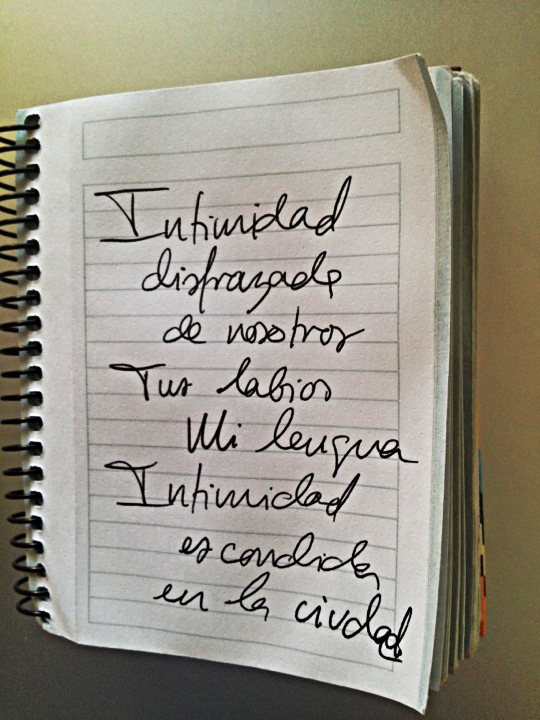 Intimidad
disfrazada
de nosotros
Tus labios
Mi lengua
Intimidad
escondida
en la ciudad